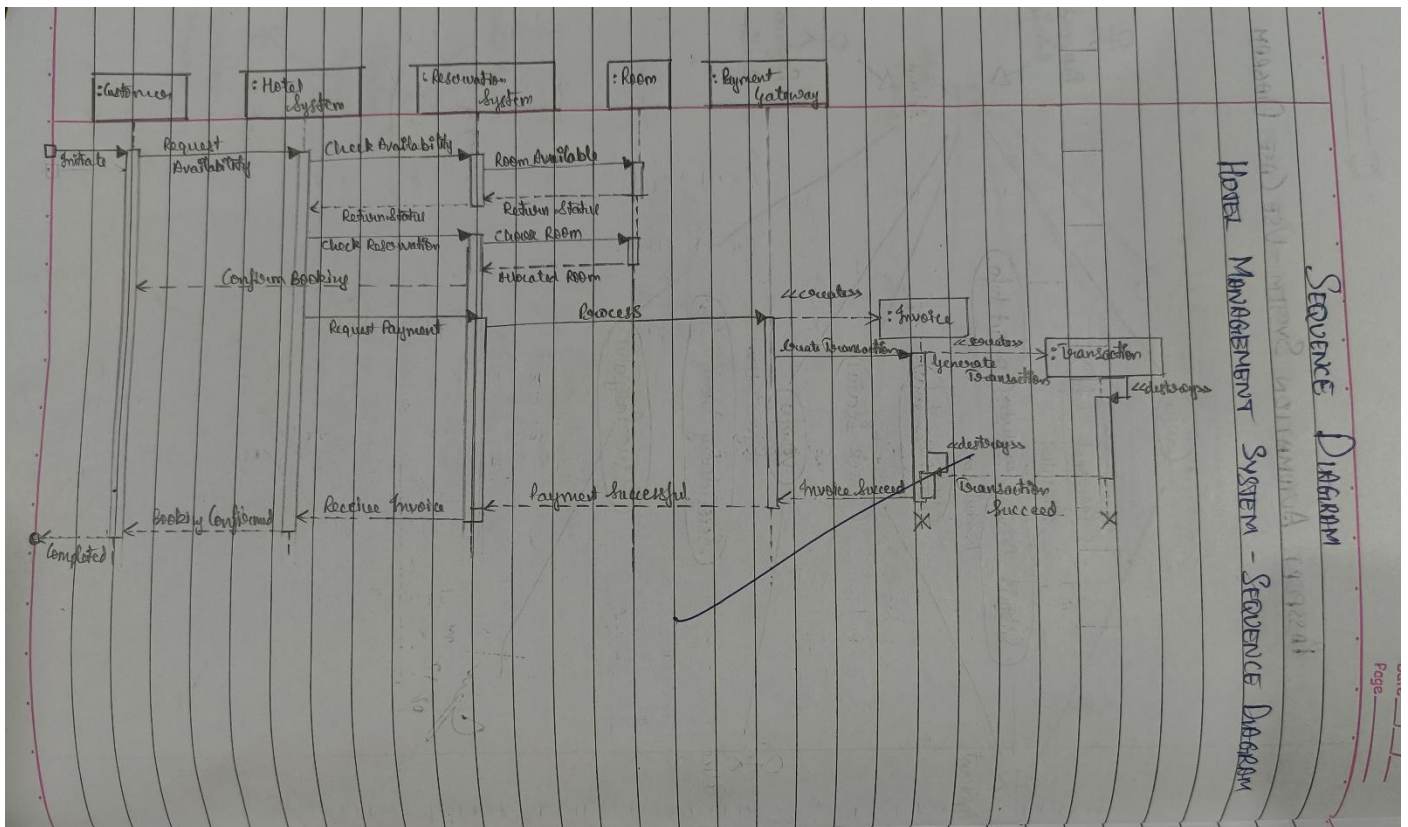 SEQUENCE DIAGRAM
HOTEL MANAGEMENT SYSTEM - SEQUENCE DIAGRAM
Page
:Customer
: Hotel
System
: Reservation
System
: Room
: Payment
Gateway
Initiate
Request
Availability
Check Availability
Room Available
Return Status
Return Status
Check Reservation
Choose Room
Allocated Room
Confirm Booking
Request Payment
Process
<<creates>>
: Invoice
Create Transaction
<<creates>>
Generate
Transaction
: Transaction
<<destroy>>
<<destroy>>
Transaction
Succeed
Invoice Succeed
Payment Successful
Receive Invoice
Booking Confirmed
Completed